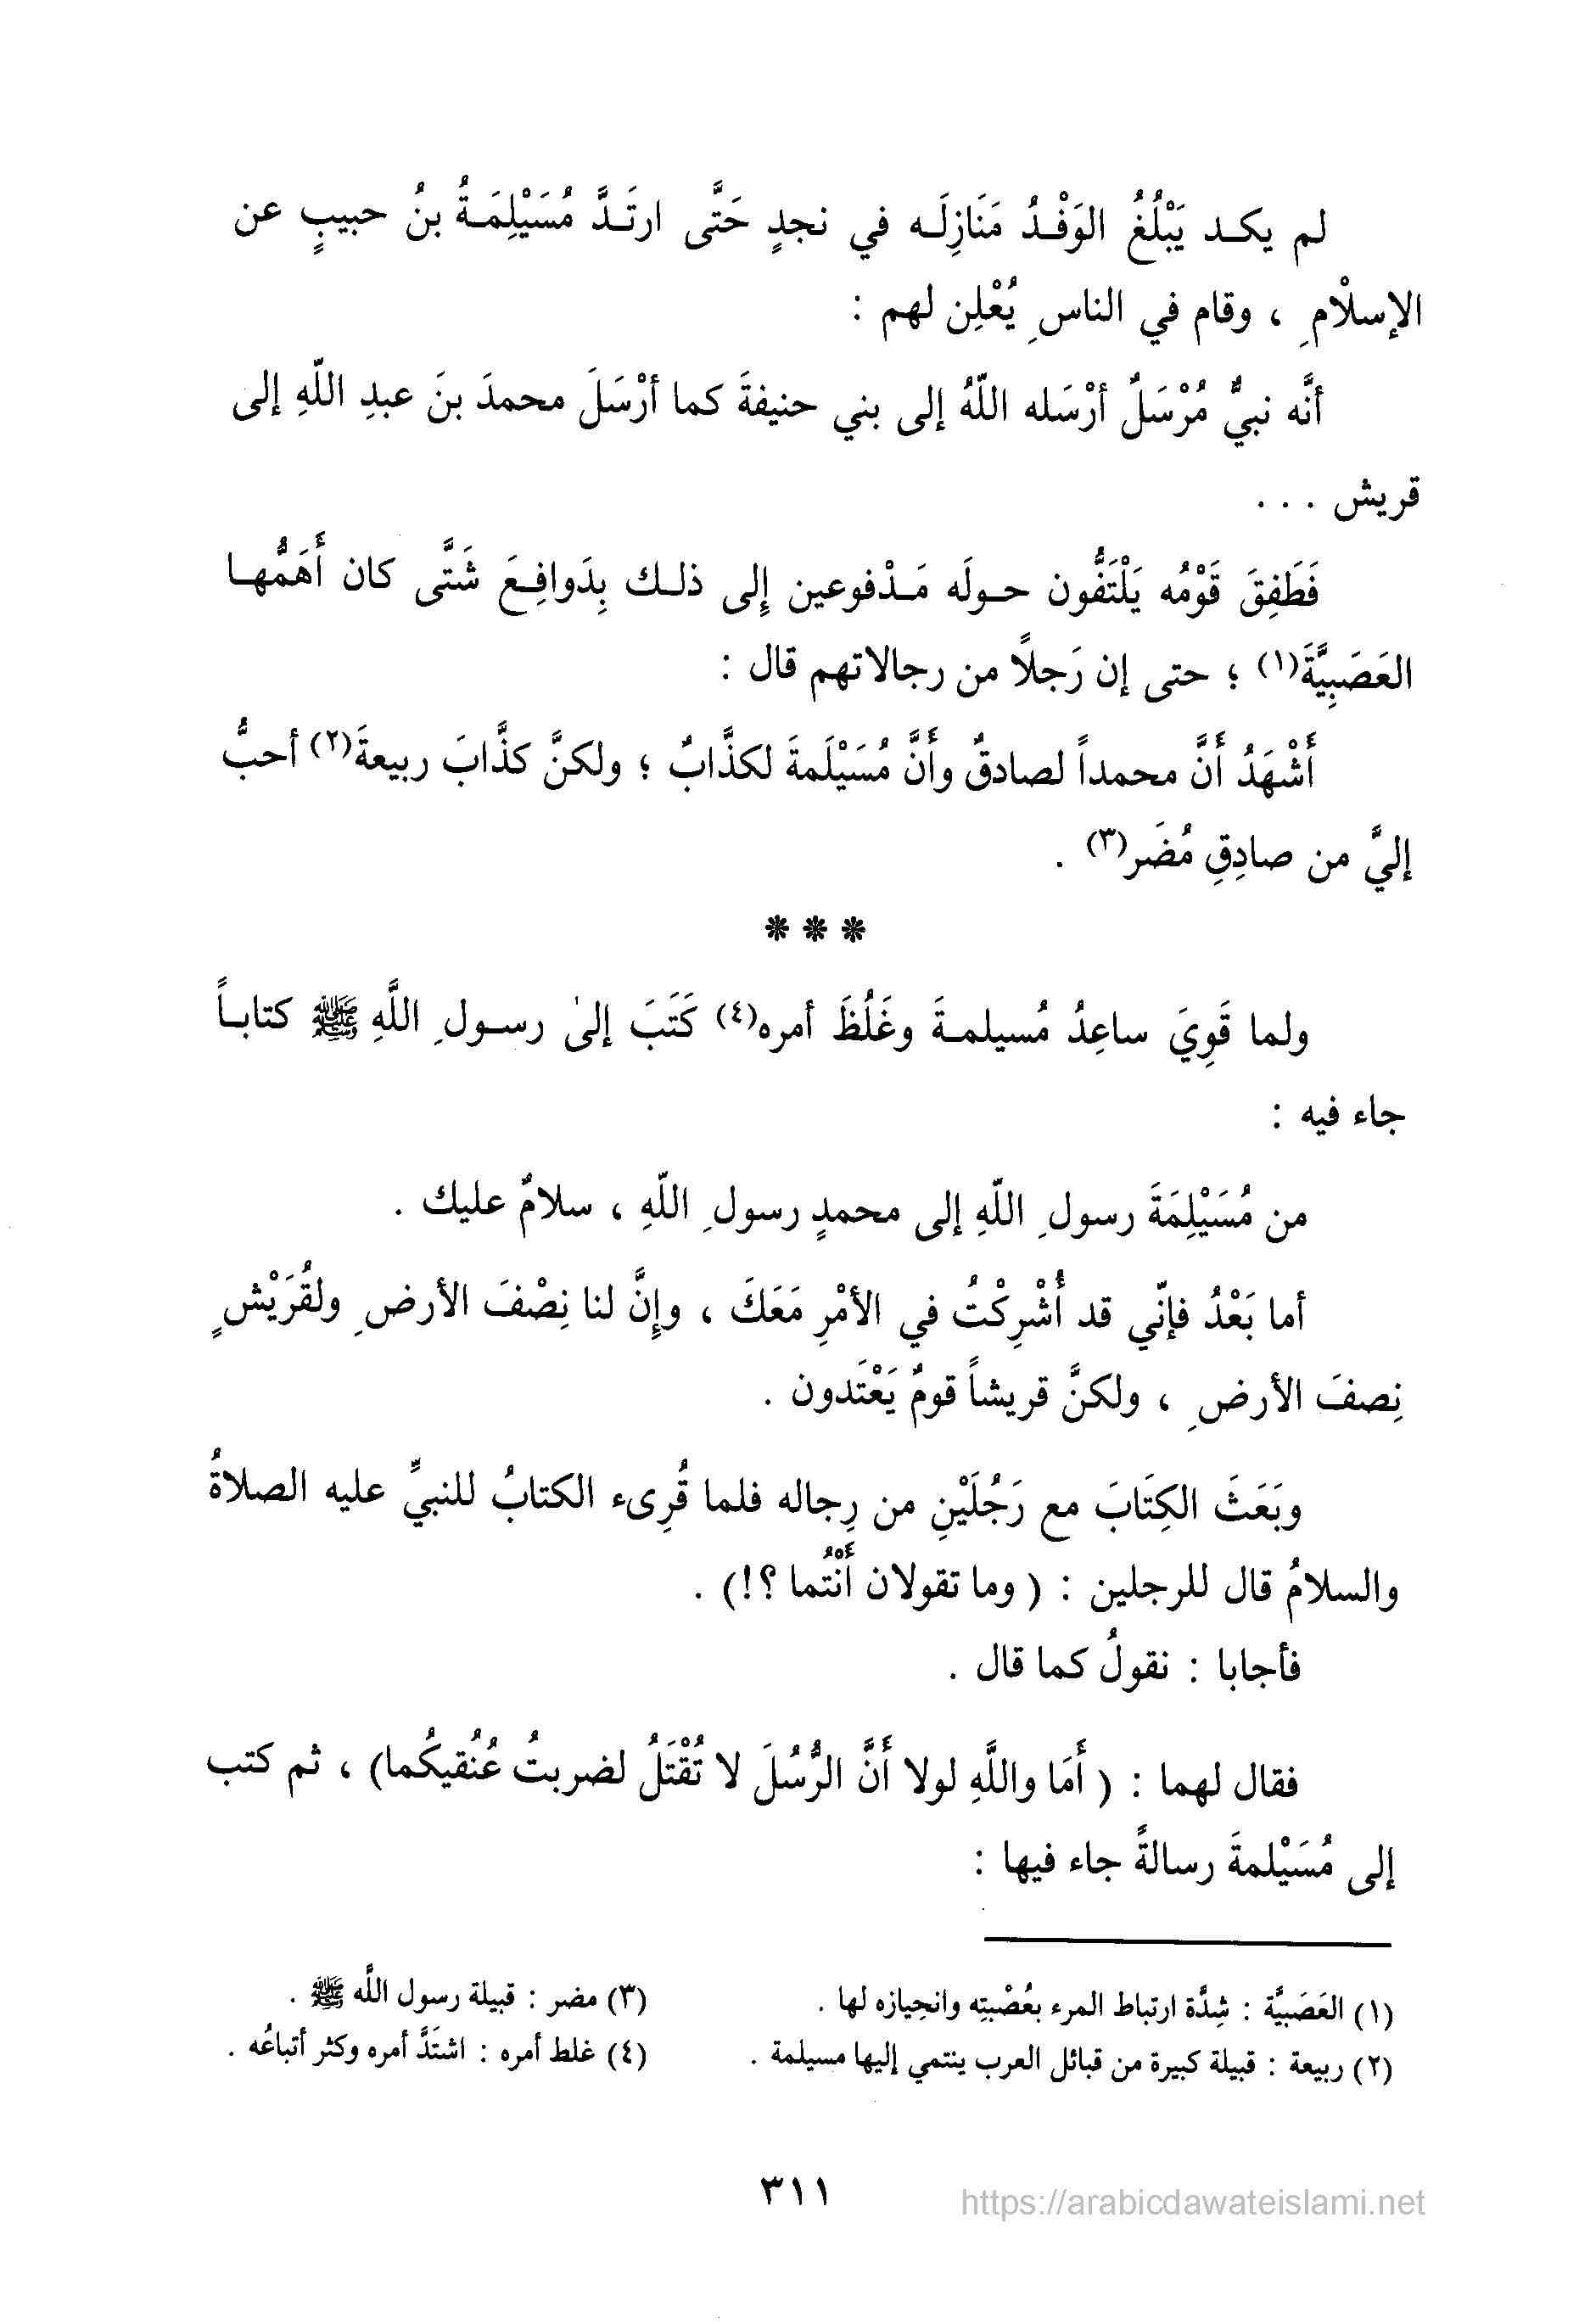 لم يكـد يَبْلُغُ الوَفْـدُ مَنَازِلَـه في نجدٍ حَتَّى ارتَـدَّ مُسَيْلِمَـةُ بنُ حبيبٍ عن
الإسلْامِ ، وقام في الناسِ يُعْلِن لهم :
أنَّه نبيٌّ مُرْسَلٌ أرْسَله اللّهُ إلى بني حنيفةَ كما أرْسَلَ محمدَ بنَ عبدِ اللّهِ إلى
قريش . . .
فَطَفِقَ قَوْمُه يَلْتَفُّون حـولَه مَـدْفوعين إِلى ذلـك بِدَوافِـعَ شَتَّى كان أَهَمُّهـا
العَصَبِيَّةَ(١) ؛ حتى إن رَجلاً من رجالاتهم قال :
أَشْهَدُ أَنَّ محمداً لصادقٌ وأَنَّ مُسَيْلَمةَ لكذَّابٌ ؛ ولكنَّ كذَّابَ ربيعةَ(٢) أحبُّ
إليَّ من صادِقِ مُضَر(٣) .
* * *
ولما قَوِيَ ساعِدُ مُسيلمـةَ وغَلُظَ أمره(٤) كَتَبَ إلىٰ رسـولِ اللَّهِ ﷺ كتابـاً
جاء فيه :
من مُسَيْلِمَةَ رسولِ اللّهِ إلى محمدٍ رسولِ اللّهِ ، سلامٌ عليك .
أما بَعْدُ فإنّي قد أُشْرِكْتُ في الأمْرِ مَعَكَ ، وإِنَّ لنا نِصْفَ الأرضِ ولقُرَيْشٍ
نِصفَ الأرضِ ، ولكنَّ قريشاً قومٌ يَعْتَدون .
وبَعَثَ الكِتَابَ مع رَجُلَيْنِ من رِجاله فلما قُرِىء الكتابُ للنبيِّ عليه الصلاةُ
والسلامُ قال للرجلين : ( وما تقولان أَنْتُما ؟!) .
فأجابا : نقولُ كما قال .
فقال لهما : ( أَمَا واللَّهِ لولا أَنَّ الرُّسُلَ لا تُقْتَلُ لضربتُ عُنُقيكُما) ، ثم كتب
إلى مُسَيْلمةَ رسالةً جاء فيها :
(١) العَصَبيَّة : شِدَّة ارتباط المرء بعُصْبتِه وانحِيازه لها .
(٢) ربيعة : قبيلة كبيرة من قبائل العرب ينتمي إليها مسيلمة .
(٣) مضر : قبيلة رسول اللَّه ﷺ .
(٤) غلط أمره : اشتَدَّ أمره وكثر أتباعُه .
٣١١
https://arabicdawateislami.net